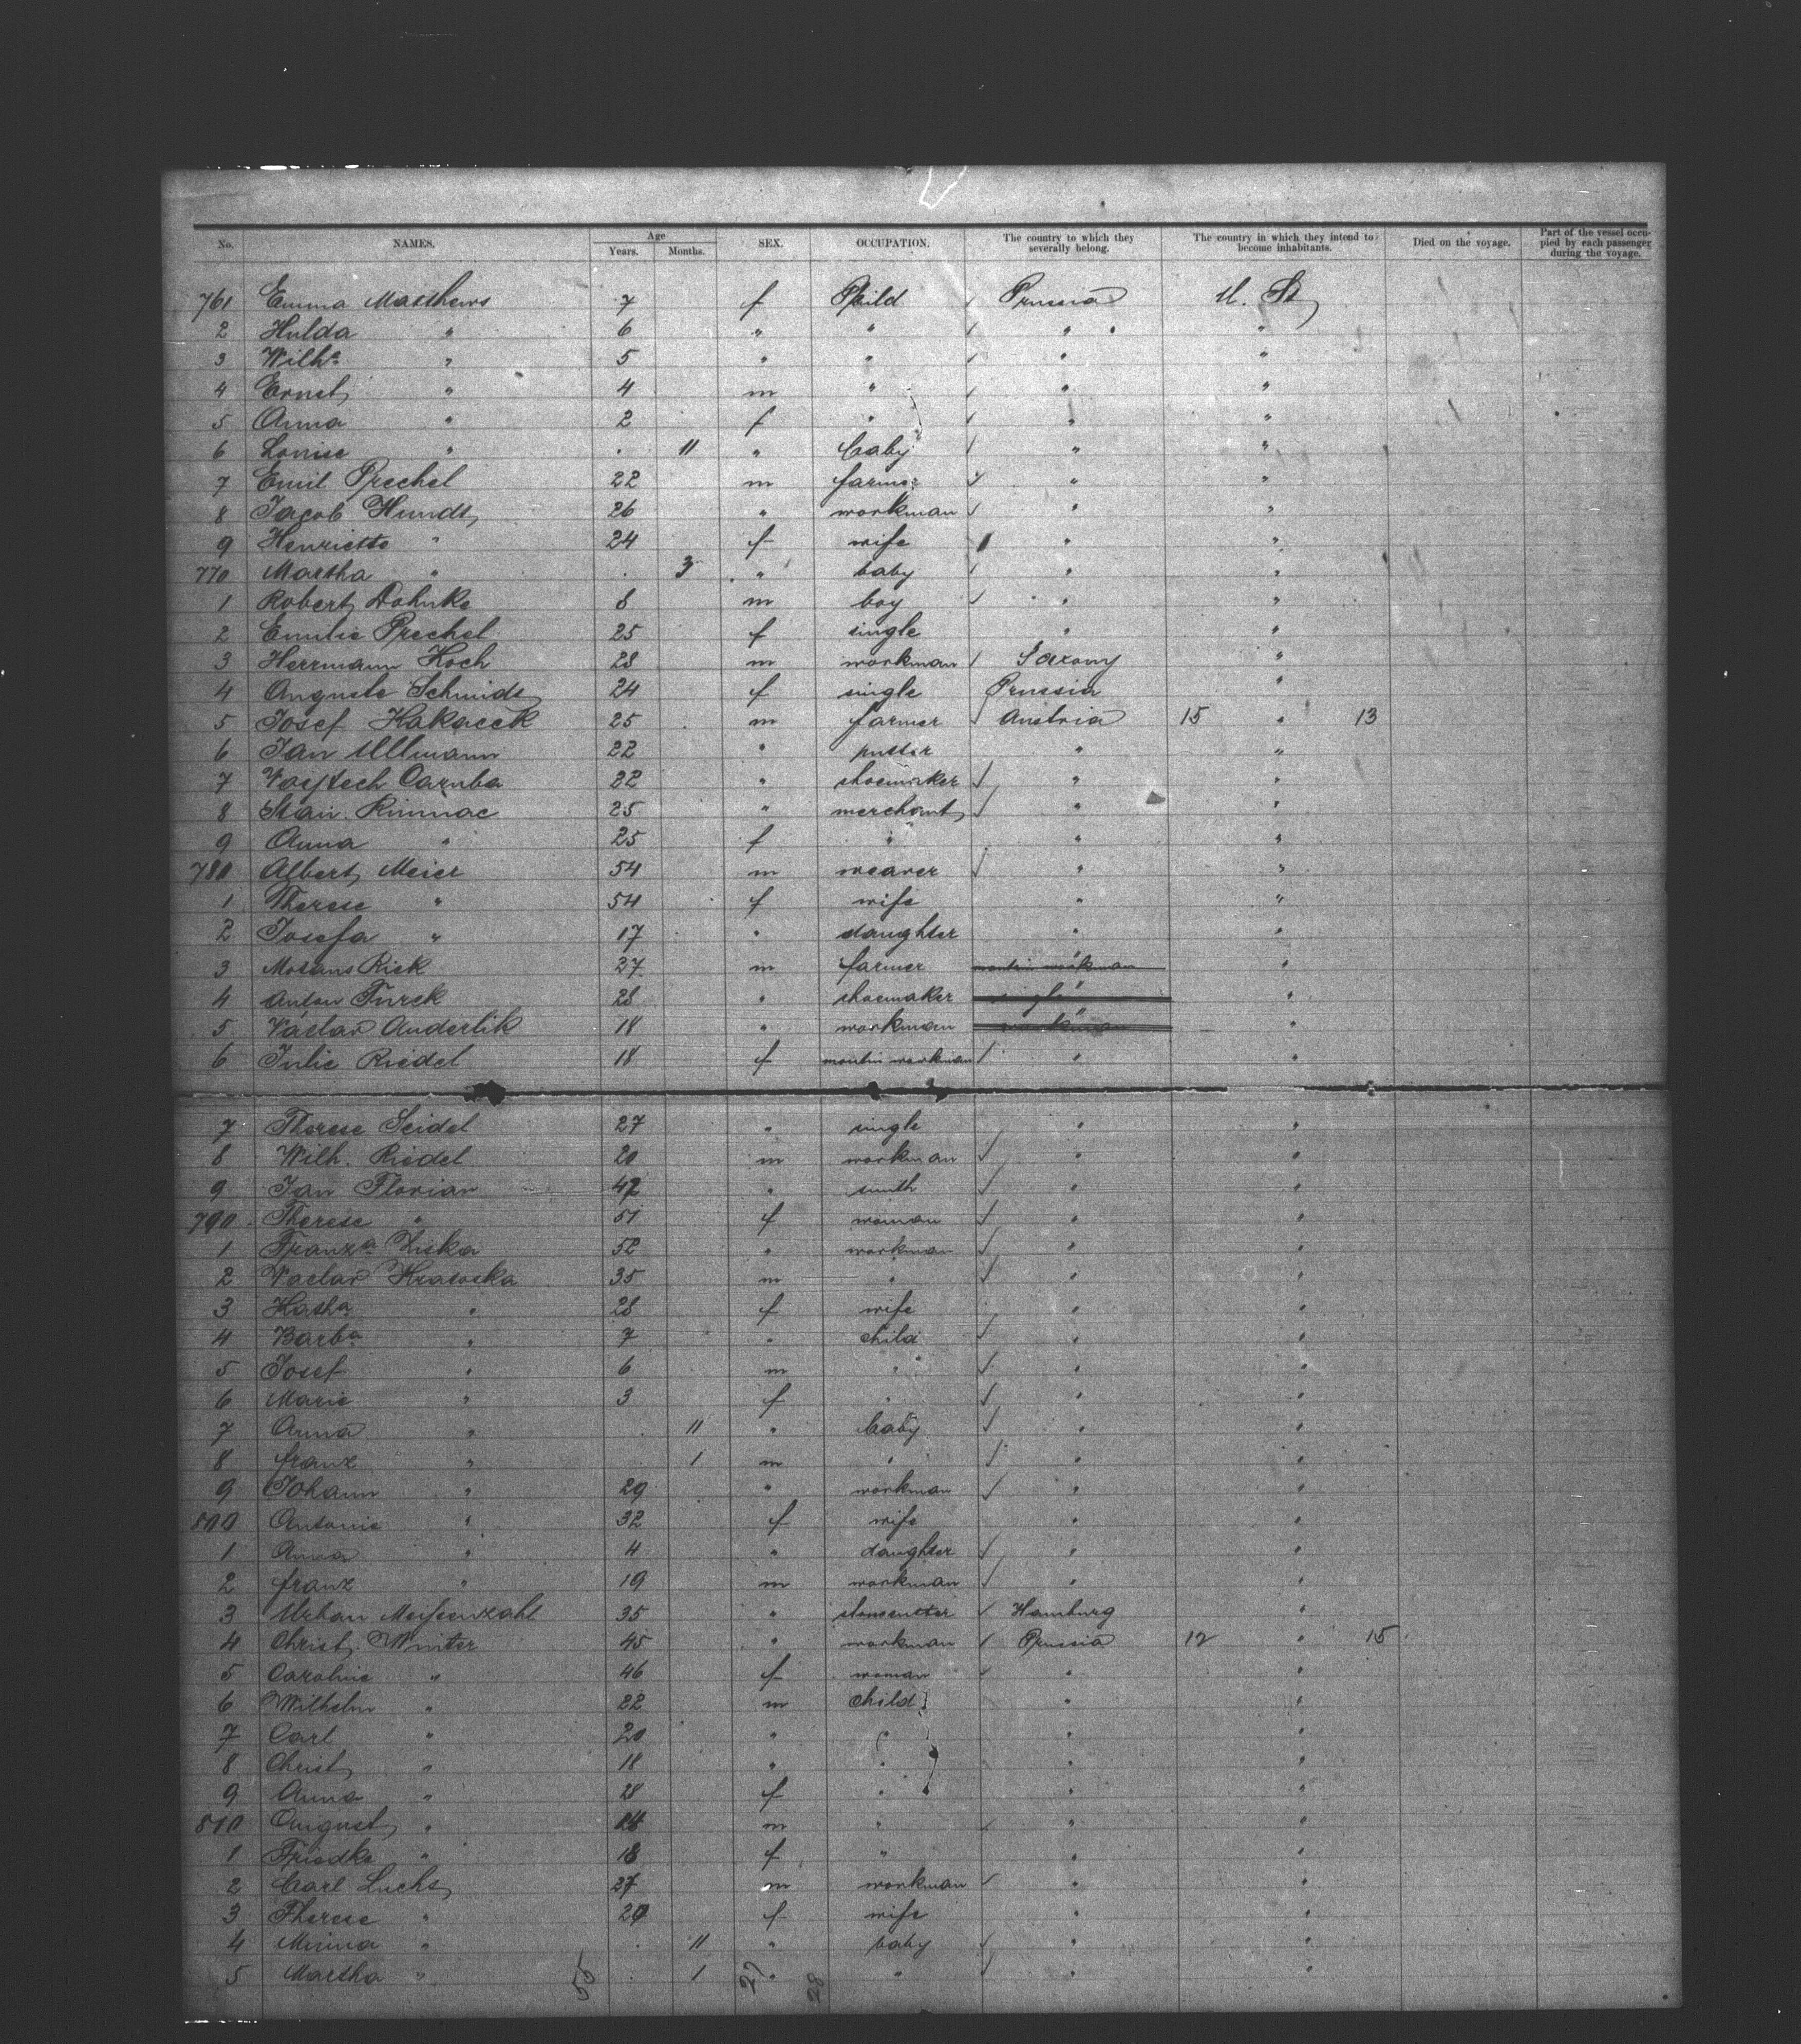 No. NAMES. Age Years. Months. SEX. OCCUPATION. The country to which they severally belong. The country in which they intend to become inhabitants. Died on the voyage. Part of the vessel occupied by each passenger during the voyage.
761 Emma Matthews 7 f Child Prussia U. St
2 Hulda " 6 " " " "
3 Wilhª " 5 " " " "
4 Ernst " 4 m " " "
5 Anna " 2 f " " "
6 Louise " . 11 " baby " "
7 Emil Prechel 22 m farmer " "
8 Jacob Hundt 26 " workman " "
9 Henriette " 24 f wife " "
770 Martha " . 3 " baby " "
1 Robert Dahnke 8 m boy " "
2 Emilie Prechel 25 f single " "
3 Herrmann Koch 28 m workman Saxony "
4 Auguste Schmidt 24 f single Prussia "
5 Josef Kakacek 25 m farmer Austria 15 " 13
6 Jan Ullmann 22 " " "
7 Vojtech Caruba 22 " shoemaker " "
8 Rimnac 25 " merchant " "
9 Anna " 25 f " " "
780 Albert Meier 54 m weaver " "
1 Therese " 54 f wife " "
2 Josefa " 17 " daughter " "
3 Rick 27 m farmer "
4 Anton Turek 28 " shoemaker single "
5 Václav Anderlik 18 " workman workman "
6 Julie Riedel 18 f workman " "
7 Therese Seidel 27 " single " "
8 Wilh. Riedel 20 m workman " "
9 Jan Florian 42 " smith " "
790 Therese " 51 f woman " "
1 Franzª Ziska 52 " workman " "
2 Vaclav 35 m " " "
3 " 28 f wife " "
4 Barbª " 7 " child " "
5 Josef " 6 m " " "
6 Marie " 3 f " " "
7 Anna " . 11 " baby " "
8 franz " . 1 m " " "
9 Johann " 29 " workman " "
800 Antonie " 32 f wife " "
1 Anna " 4 " daughter " "
2 franz " 19 m workman " "
3 Urban 35 " stonecutter Hamburg "
4 Christ. Winter 45 " workman Prussia 12 " 15
5 Caroline " 46 f woman " "
6 Wilhelm " 22 m child " "
7 Carl " 20 " " " "
8 Christ " 18 " " " "
9 Anna " f " " "
810 August " m " " "
1 Friedke " f " " "
2 Carl Luchs 27 m workman " "
3 Therese " f wife " "
4 Minna " . 11 " baby " "
5 Martha " . 1 " " " "
55 27 28